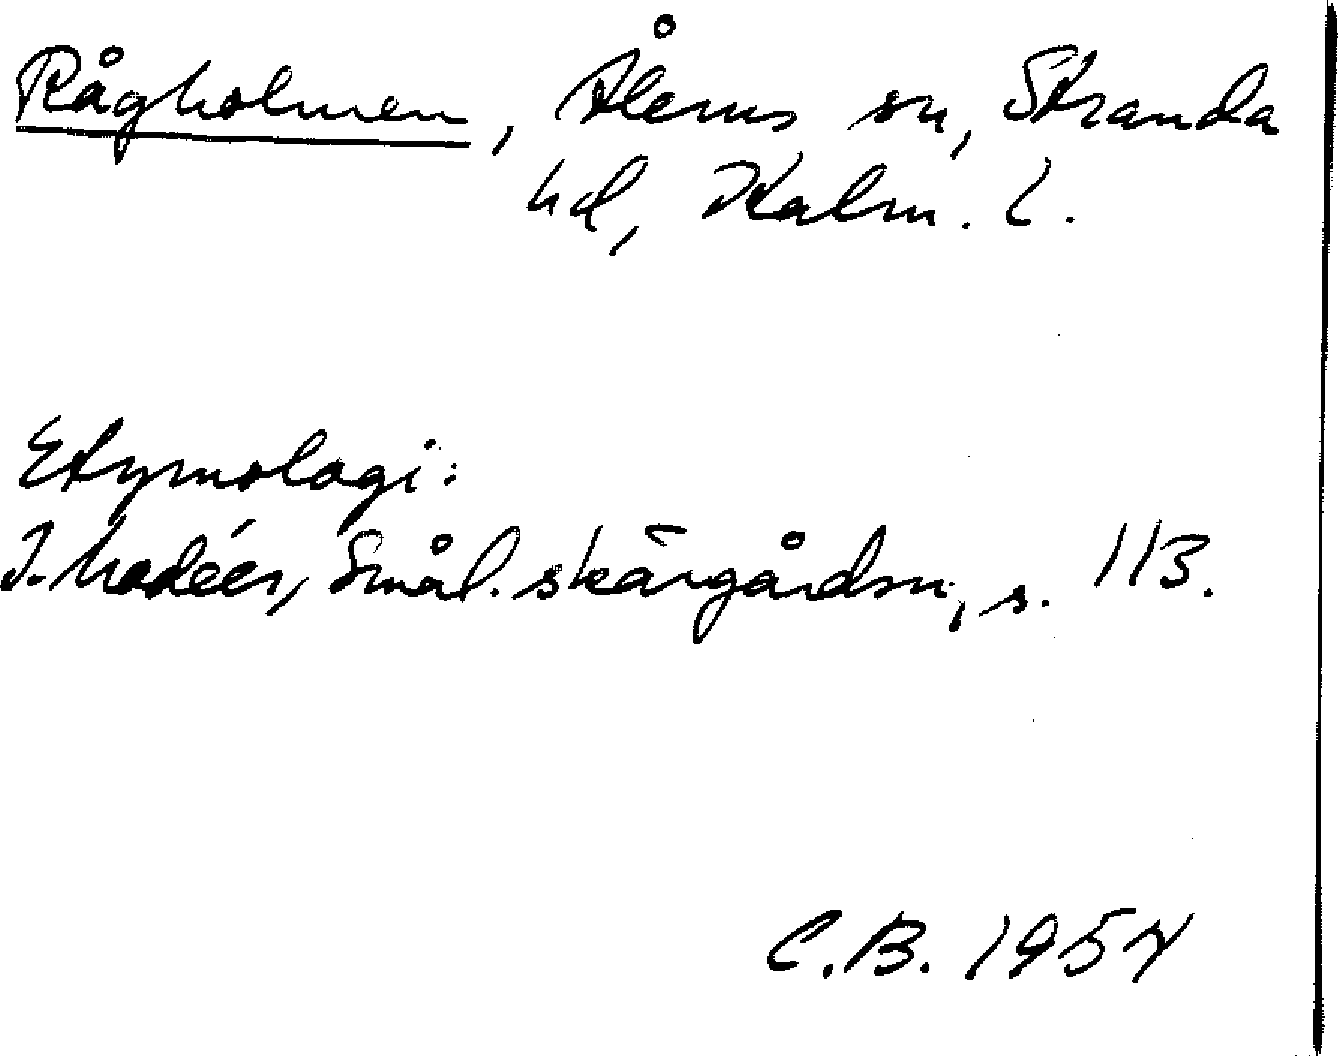 Rågholmen, Ålems sn, Stranda
hd, Kalm. l.
Etymologi:
I. Modéer, Smål. skärgårdsn., s. 113.
C.B. 1957